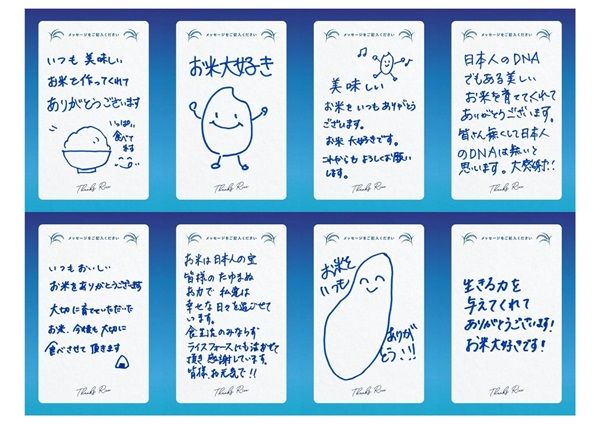 メッセージをご記入ください
いつも 美味しい
お米を作ってくれて
ありがとうございます
いっぱい
食べて
ます
Thanks Rice
メッセージをご記入ください
お米大好き
Thanks Rice
メッセージをご記入ください
美味しい
お米をいつもありがとう
ございます。
お米 大好きです。
これからも よろしくお願い
します。
Thanks Rice
メッセージをご記入ください
日本人のDNA
でもある美しい
お米を育ててくれて
ありがとうございます。
皆さん無くして日本人
のDNAは無いと
思います。大感謝!!
Thanks Rice
メッセージをご記入ください
いつもおいしい
お米をありがとうございます
大切に育てていただいた
お米、今後も大切に
食べさせて頂きます
Thanks Rice
メッセージをご記入ください
お米は日本人の宝
皆様のたゆまぬ
お力で 私達は
幸せな日々を過ごせて
います。
食生活のみならず
ライスフォースにも活かせて
頂き感謝しています。
皆様、お元気で!!
Thanks Rice
メッセージをご記入ください
お米を
いつも
ありが
とう!!!
Thanks Rice
メッセージをご記入ください
生きる力を
与えてくれて
ありがとうございます!
お米大好きです!
Thanks Rice